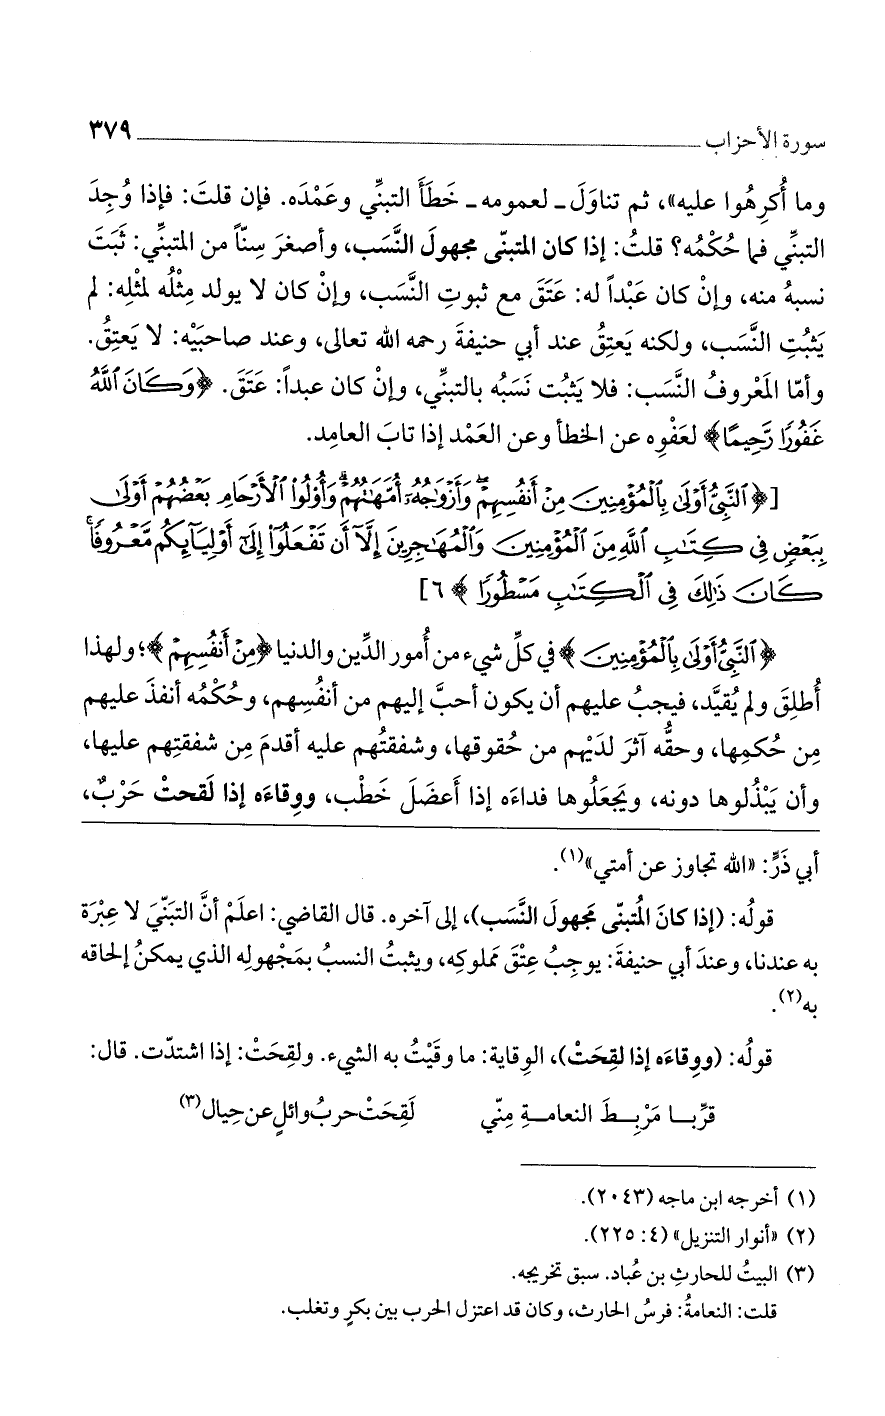 سورة الأحزاب ٣٧٩
وما أُكرِهُوا عليه»، ثم تناوَلَ ـ لعمومه ـ خَطَأَ التبنِّي وعَمْدَه. فإن قلتَ: فإذا وُجِدَ
التبنِّي فما حُكْمُه؟ قلتُ: إذا كان المتبنّى مجهولَ النَّسَب، وأصغرَ سِنّاً من المتبنِّي: ثَبَتَ
نسبهُ منه، وإنْ كان عَبْداً له: عَتَقَ مع ثبوتِ النَّسَب، وإنْ كان لا يولد مِثْلُه لمثْلِه: لم
يَثبُتِ النَّسَب، ولكنه يَعتِقُ عند أبي حنيفةَ رحمه الله تعالى، وعند صاحبَيْه: لا يَعتِقُ.
وأمّا المَعْروفُ النَّسَب: فلا يَثبُت نَسَبُه بالتبنِّي، وإنْ كان عبداً: عَتَقَ. ﴿وَكَانَ ٱللَّهُ
غَفُورًا رَّحِيمًا﴾ لعَفْوِه عن الخطأ وعن العَمْد إذا تابَ العامِد.
[﴿ ٱلنَّبِىُّ أَوْلَىٰ بِٱلْمُؤْمِنِينَ مِنْ أَنفُسِهِمْ ۖ وَأَزْوَٰجُهُۥٓ أُمَّهَٰتُهُمْ ۗ وَأُو۟لُوا۟ ٱلْأَرْحَامِ بَعْضُهُمْ أَوْلَىٰ
بِبَعْضٍ فِى كِتَٰبِ ٱللَّهِ مِنَ ٱلْمُؤْمِنِينَ وَٱلْمُهَٰجِرِينَ إِلَّآ أَن تَفْعَلُوٓا۟ إِلَىٰٓ أَوْلِيَآئِكُم مَّعْرُوفًا ۚ
كَانَ ذَٰلِكَ فِى ٱلْكِتَٰبِ مَسْطُورًا ﴾ ٦]
﴿ ٱلنَّبِىُّ أَوْلَىٰ بِٱلْمُؤْمِنِينَ ﴾ في كلِّ شيء من أُمور الدِّين والدنيا ﴿مِنْ أَنفُسِهِمْ ﴾؛ ولهذا
أُطلِقَ ولم يُقيَّد، فيجبُ عليهم أن يكون أحبَّ إليهم من أنفُسِهم، وحُكْمُه أنفذَ عليهم
مِن حُكمِها، وحقُّه آثرَ لدَيْهم من حُقوقها، وشفقتُهم عليه أقدمَ مِن شفقتِهم عليها،
وأن يَبْذُلوها دونه، ويَجعَلُوها فداءَه إذا أَعضَلَ خَطْب، ووِقاءَه إذا لَقحتْ حَرْبٌ،
أبي ذَرٍّ: «الله تجاوز عن أمتي»(١).
قولُه: (إذا كانَ المُتبنّى مَجهولَ النَّسَب)، إلى آخره. قال القاضي: اعلَمْ أنَّ التبَنّيَ لا عِبْرَة
به عندنا، وعندَ أبي حنيفةَ: يوجِبُ عِتْقَ مَملوكِه، ويثبتُ النسبُ بمَجْهولِه الذي يمكنُ إلحاقه
به(٢).
قولُه: (ووِقاءَه إذا لقِحَتْ)، الوِقاية: ما وقَيْتُ به الشيء. ولقِحَتْ: إذا اشتدّت. قال:
قرِّبــا مَرْبِــطَ النعامــةِ مِنّي لَقِحَتْ حربُ وائلٍ عن حِيال(٣)
(١) أخرجه ابن ماجه (٢٠٤٣).
(٢) «أنوار التنزيل» (٤: ٢٢٥).
(٣) البيتُ للحارثِ بن عُباد. سبق تخريجه.
قلت: النعامةُ: فرسُ الحارث، وكان قد اعتزل الحرب بين بكرٍ وتغلب.